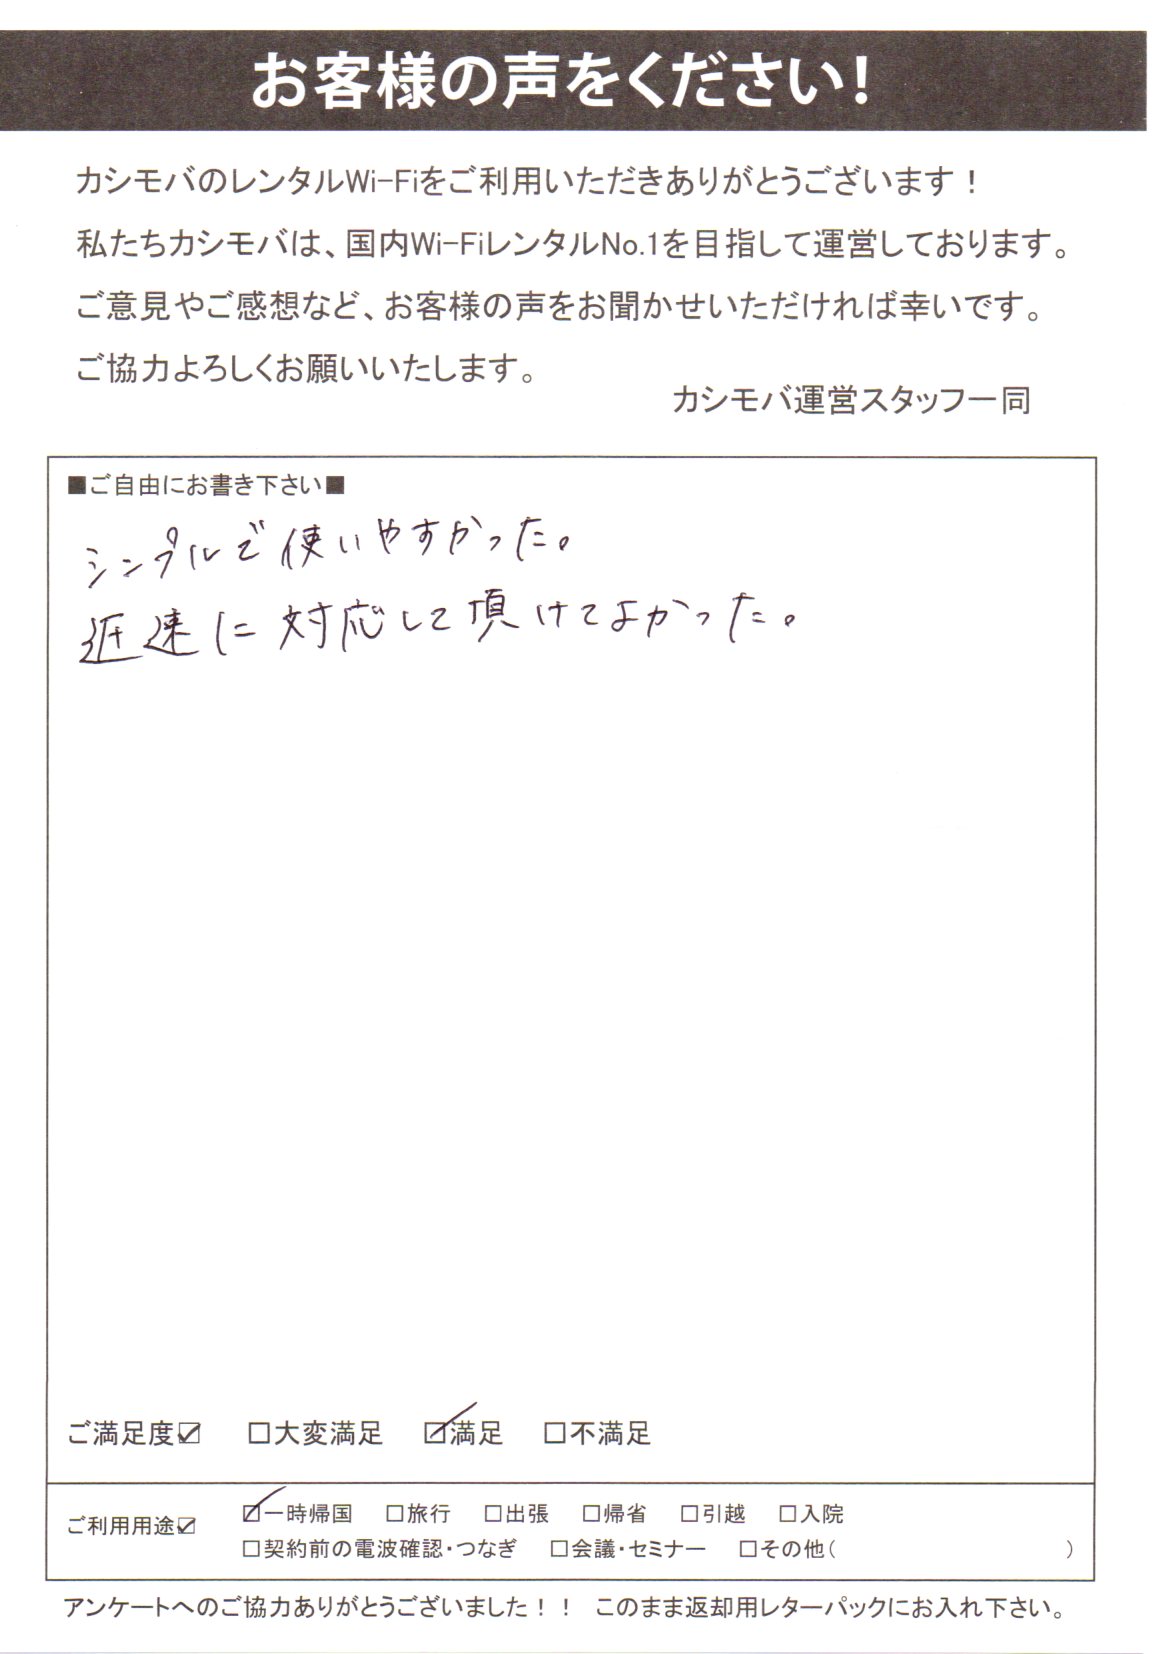 お客様の声をください！
カシモバのレンタルWi-Fiをご利用いただきありがとうございます！
私たちカシモバは、国内Wi-FiレンタルNo.1を目指して運営しております。
ご意見やご感想など、お客様の声をお聞かせいただければ幸いです。
ご協力よろしくお願いいたします。
カシモバ運営スタッフ一同
■ご自由にお書き下さい■
シンプルで使いやすかった。
速に対応して頂けてよかった。
ご満足度☑ □大変満足 ☑満足 □不満足
ご利用用途☑ ☑一時帰国 □旅行 □出張 □帰省 □引越 □入院
□契約前の電波確認・つなぎ □会議・セミナー □その他( )
アンケートへのご協力ありがとうございました！！ このまま返却用レターパックにお入れ下さい。